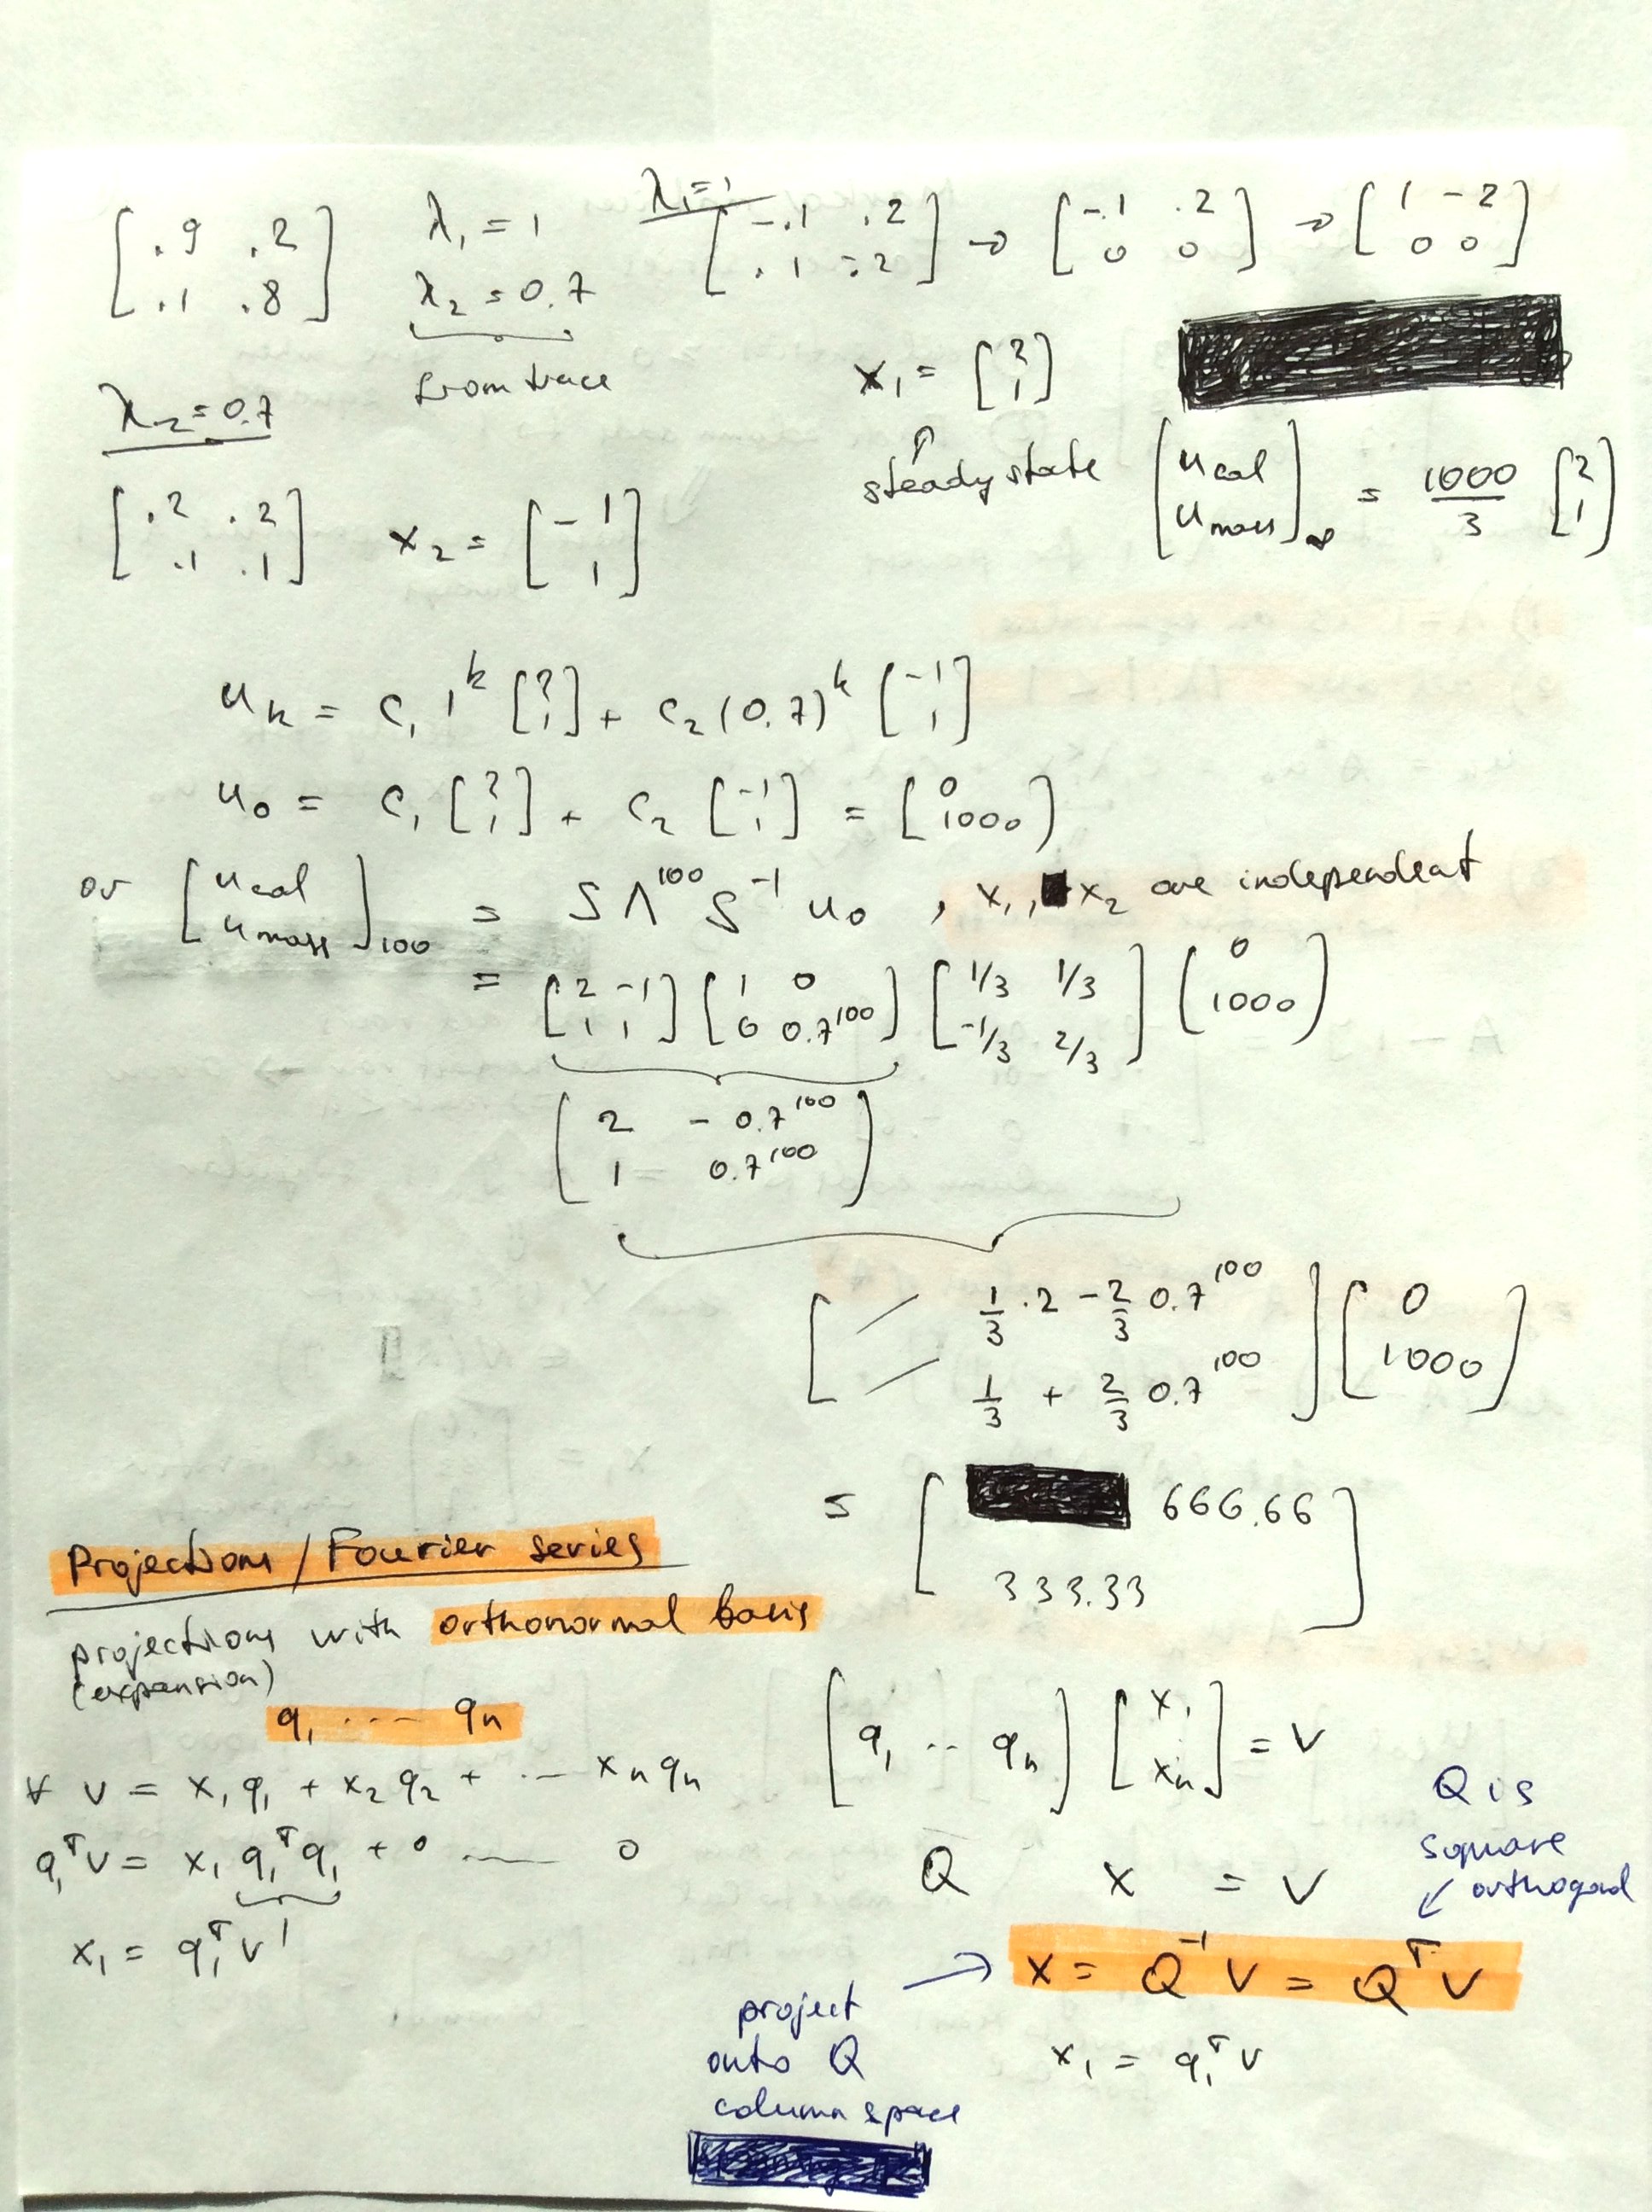 [.9 .2; .1 .8] λ₁ = 1 λ₂ = 0.7 from trace
λ₁=1 [-.1 .2; .1 -.2] → [-.1 .2; 0 0] → [1 -2; 0 0]
x₁ = [2; 1]
↑ steady state [u cal; u mass]∞ = 1000/3 [2; 1]
λ₂=0.7
[.2 .2; .1 .1] x₂ = [-1; 1]
uₖ = c₁ 1ᵏ [2; 1] + c₂ (0.7)ᵏ [-1; 1]
u₀ = c₁ [2; 1] + c₂ [-1; 1] = [0; 1000]
or [u cal; u mass]₁₀₀ = S Λ¹⁰⁰ S⁻¹ u₀ , x₁, x₂ are independent
= [2 -1; 1 1] [1 0; 0 0.7¹⁰⁰] [1/3 1/3; -1/3 2/3] [0; 1000]
[2 -0.7¹⁰⁰; 1 0.7¹⁰⁰]
[1/3 · 2 - 2/3 0.7¹⁰⁰; 1/3 + 2/3 0.7¹⁰⁰] [0; 1000]
= [666.66; 333.33]
Projections / Fourier series
projections with orthonormal basis
(expansion)
q₁ ... qₙ
∀ v = x₁q₁ + x₂q₂ + ... xₙqₙ
q₁ᵀv = x₁ q₁ᵀq₁ + 0 ... 0
1
x₁ = q₁ᵀv
[q₁ .. qₙ] [x₁; xₙ] = v
Q x = v
Q is
square
↙ orthogonal
→ x = Q⁻¹ v = Qᵀ v
project
onto Q
column space
x₁ = q₁ᵀ v